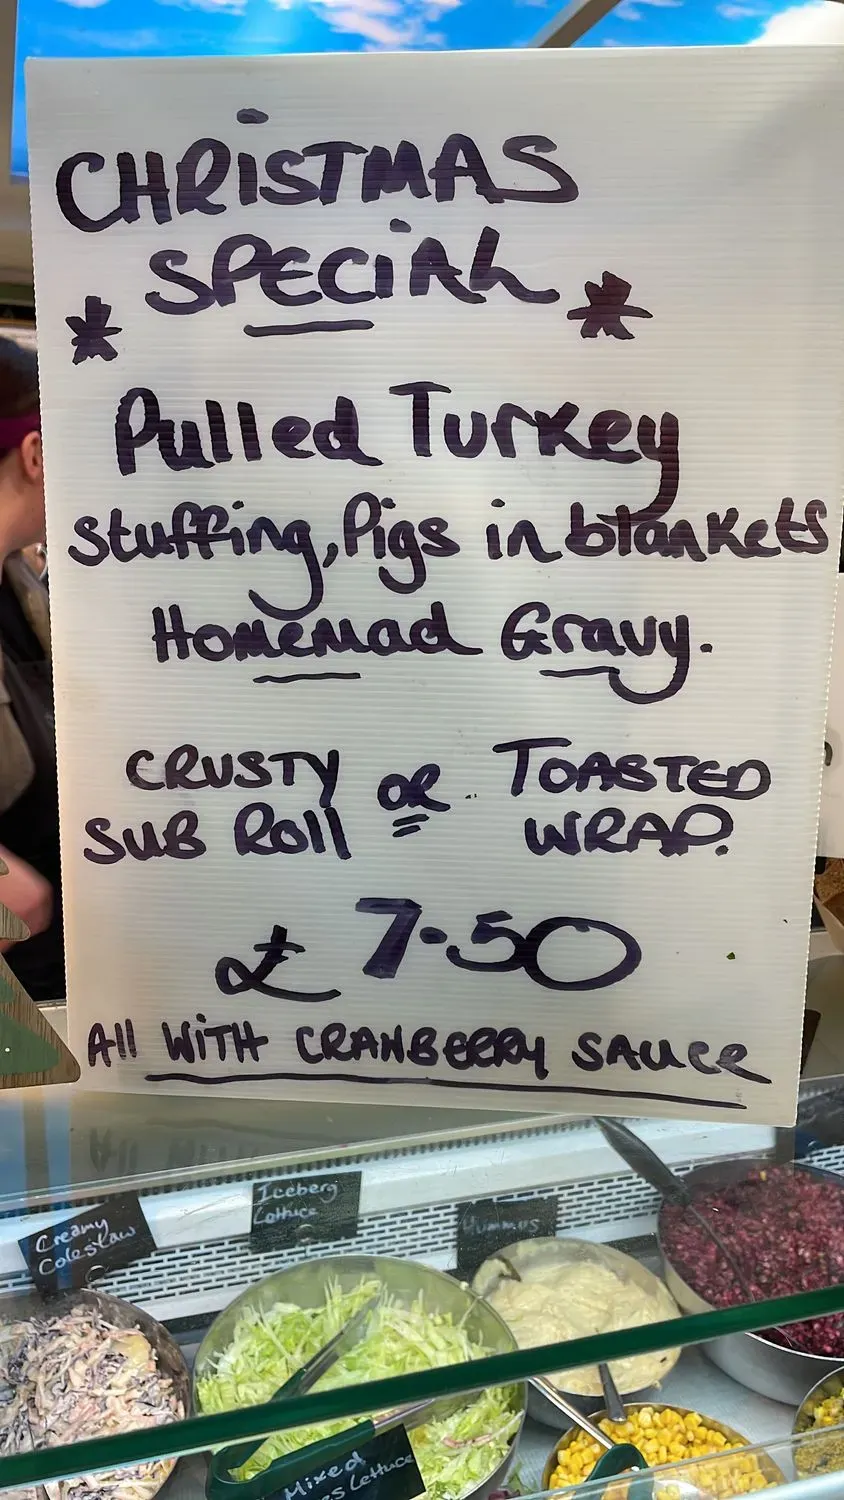 CHRiSTMAS
SPECiAL
* *
Pulled Turkey
Stuffing, Pigs in blankets
Homemad Gravy.
CRUSTY OR TOASTED
SUB Roll WRAP.
£7-50
All WiTH CRANBERRY SAUCE
Creamy
Coleslaw
Iceberg
Lettuce
Hummus
Mixed
Lettuce